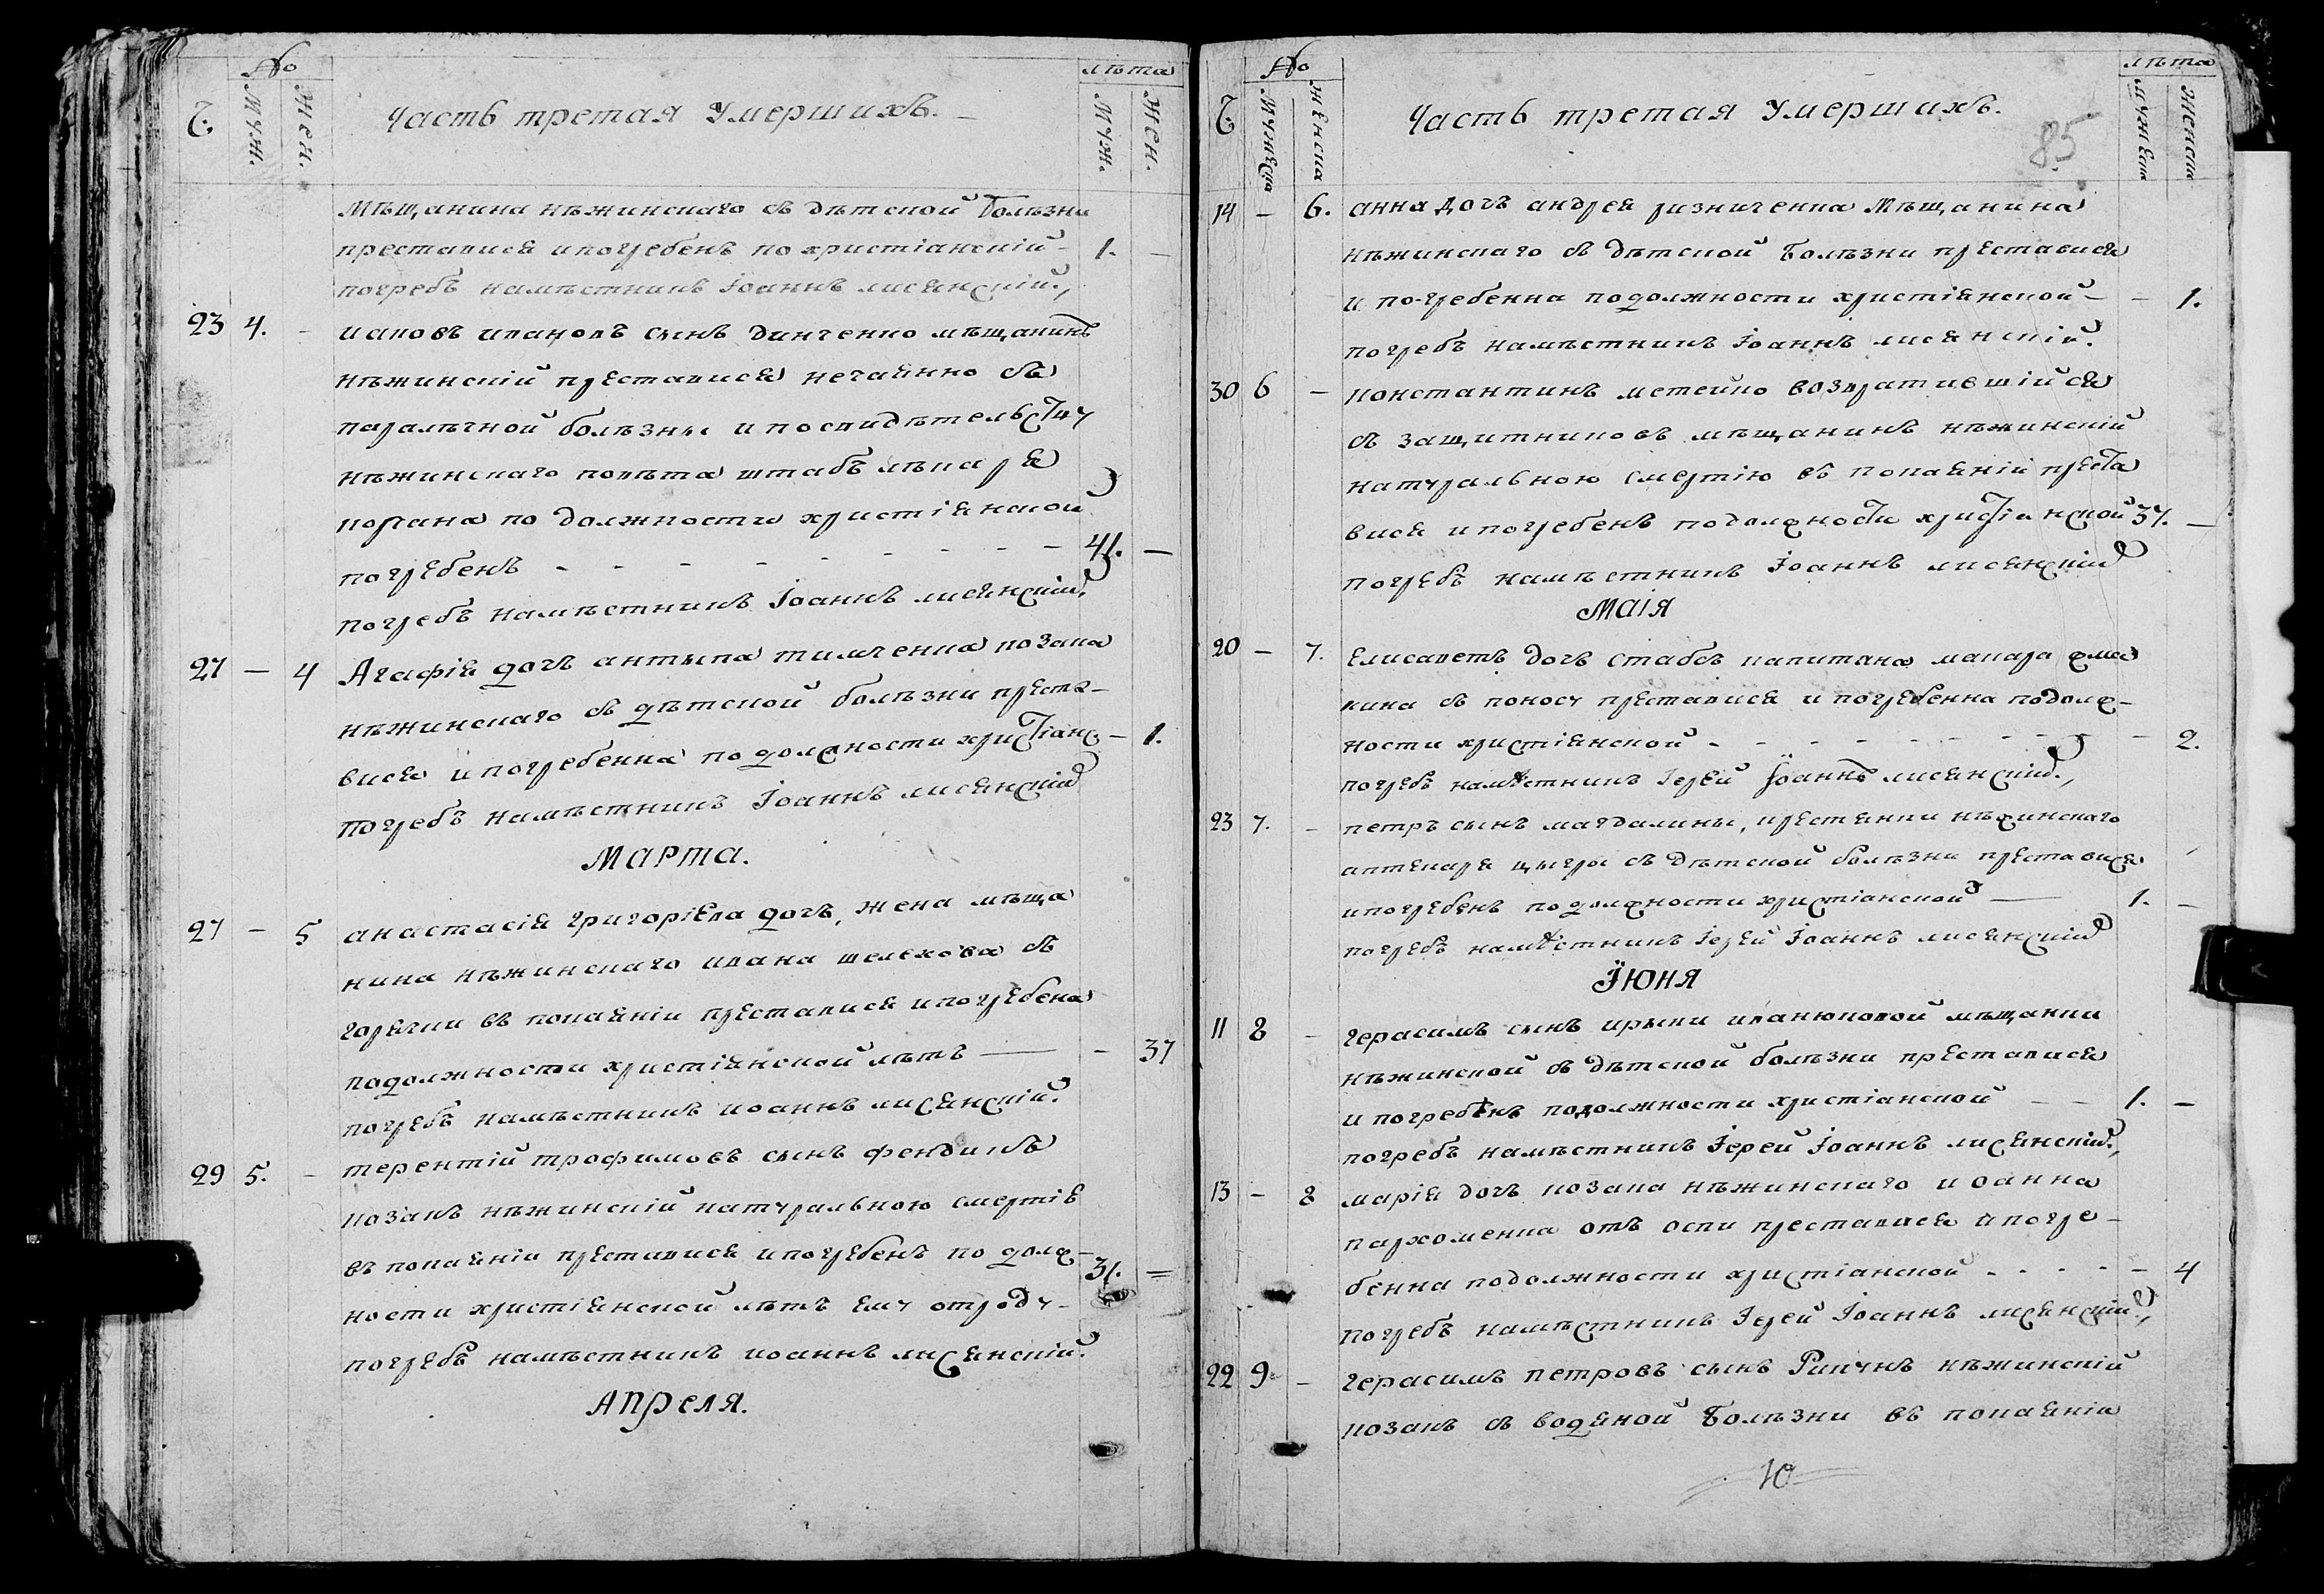 №
лѣта
Ч.
Муж.
Жен.
Часть третая умершихъ.
Муж.
Жен.
мѣщанина нѣжинскаго съ дѣтской болѣзни
преставися и погребенъ по христіанскій - 1. -
погребъ намѣстникъ Іоаннъ лисянскій.,
23 4. - иаковъ ивановъ сынъ динченко мѣщанинъ
нѣжинскій преставися нечаянно съ
паралѣчной болѣзны и по свидѣтельству
нѣжинскаго повѣта штабъ лѣкаря
по должности христіянской
погребенъ - - - - - - - - 41. -
погребъ намѣстникъ Іоаннъ лисянскій.
27 - 4 Агафія дочъ антыпа тимченка козака
нѣжинскаго съ дѣтской болѣзни преста-
вися и погребенна по должности христіанс - 1.
погребъ намѣстникъ Іоаннъ лисянскій
Марта.
27 - 5 анастасія григоріева дочъ, жена мѣща
нина нѣжинскаго ивана шелехова съ
горячки въ покаяніи преставися и погребена
по должности христіянской лѣтъ — - 37
погребъ намѣстникъ иоаннъ лисянскій.
29 5. - терентій трофимовъ сынъ фендикъ
козакъ нѣжинскій натуральною смертіе
въ покаяніи преставися и погребенъ по долж-
ности христіянской лѣтъ ему отроду - 31. =
погребъ намѣстникъ иоаннъ лисянскій.
Апреля.
№
лѣта
Ч.
Мужеска
Женска
Часть третая умершихъ.
85
мужеск
Женска
14 - 6. анна дочъ андрея ризниченка мѣщанина
нѣжинскаго съ дѣтской болѣзни преставися
и погребенна по должности христіянской - - 1.
погребъ намѣстникъ Іоаннъ лисянскій.
30 6 - константинъ метейко возвратившійся
съ защитниковъ мѣщанинъ нѣжинскій
натуральною смертію въ покаяніи преста
вися и погребенъ по должности христіянской 37. -
погребъ намѣстникъ Іоаннъ лисянскій
Маія
20 - 7. Елисаветъ дочъ стабсъ капитана макара
кина съ поносу преставися и погребенна по долж-
ности христіянской - - - - - - - - - 2.
погребъ намѣстникъ Іерей Іоаннъ лисянскій.,
23 7. - петръ сынъ магдалины, крестянки нѣжинскаго
аптекаря съ дѣтской болѣзни преставися
и погребенъ по должности христіанской — 1. -
погребъ намѣстникъ Іерей Іоаннъ лисянскій
Їюня
11 8 - герасимъ сынъ ирыни иванюковой мѣщанки
нѣжинской съ дѣтской болѣзни преставися
и погребенъ по должности христіанской - - 1. -
погребъ намѣстникъ Іерей Іоаннъ лисянскій.,
13 - 8 марія дочъ козака нѣжинскаго иоанна
пархоменка отъ оспи преставися и погре-
бенна по должности христіанской - - - - - 4
погребъ намѣстникъ Іерей Іоаннъ лисянскій.,
22 9. - герасимъ петровъ сынъ Рикунъ нѣжинскій
козакъ съ водяной болѣзни въ покаяніи
10